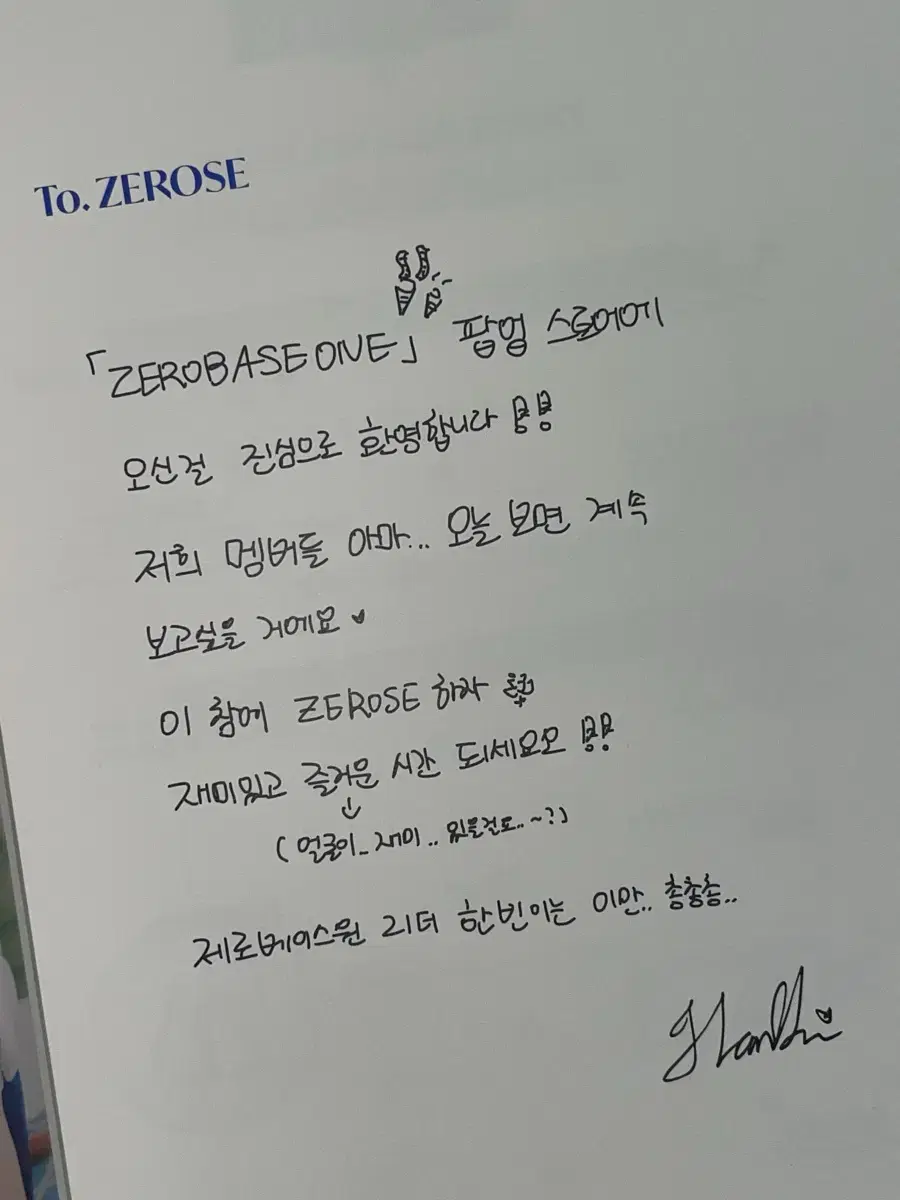 To. ZEROSE
「ZEROBASEONE」 팝업 스토어에
오신걸 진심으로 환영합니다
저희 멤버들 아마... 오늘 보면 계속
보고싶을 거에요 ♥
이 참에 ZEROSE 하자
재미있고 즐거운 시간 되세요오
↓
(얼굴이.. 재미.. 있을걸요..~?)
제로베이스원 리더 한빈이는 이만.. 총총총..
Hanbin